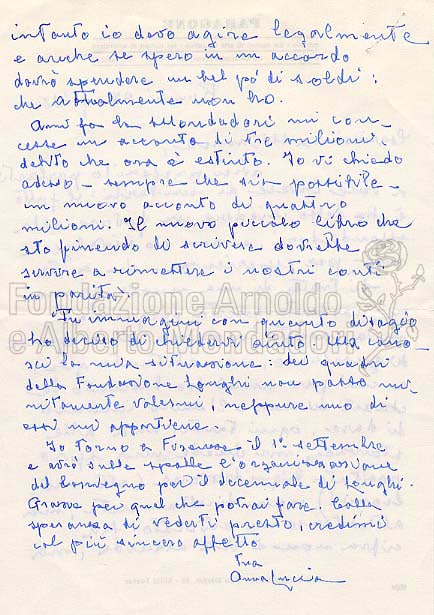 intanto io devo agire legalmente
e anche se spero in un accordo
dovrò spendere un bel pò di soldi:
che attualmente non ho.
Anni fa la Mondadori mi con-
cesse un acconto di tre milioni,
debito che ora è estinto. Io vi chiedo
adesso - sempre che sia possibile -
un nuovo acconto di quattro
milioni. Il nuovo piccolo libro che
sto finendo di scrivere dovrebbe
servire a rimettere i nostri conti
in parità.
Fondazione Arnoldo
e Alberto Mondadori
Tu immagini con quanto disagio
ho deciso di chiedervi aiuto ma cono-
sci la mia situazione: dei quadri
della Fondazione Longhi non posso mi-
nimamente valermi, neppure uno di
essi mi appartiene.
Io torno a Firenze il 1° settembre
e avrò sulle spalle l'organizzazione
del Convegno per il decennale di Longhi.
Grazie per quel che potrai fare. Colla
speranza di vederti presto, credimi
col più sincero affetto.
tua
Anna